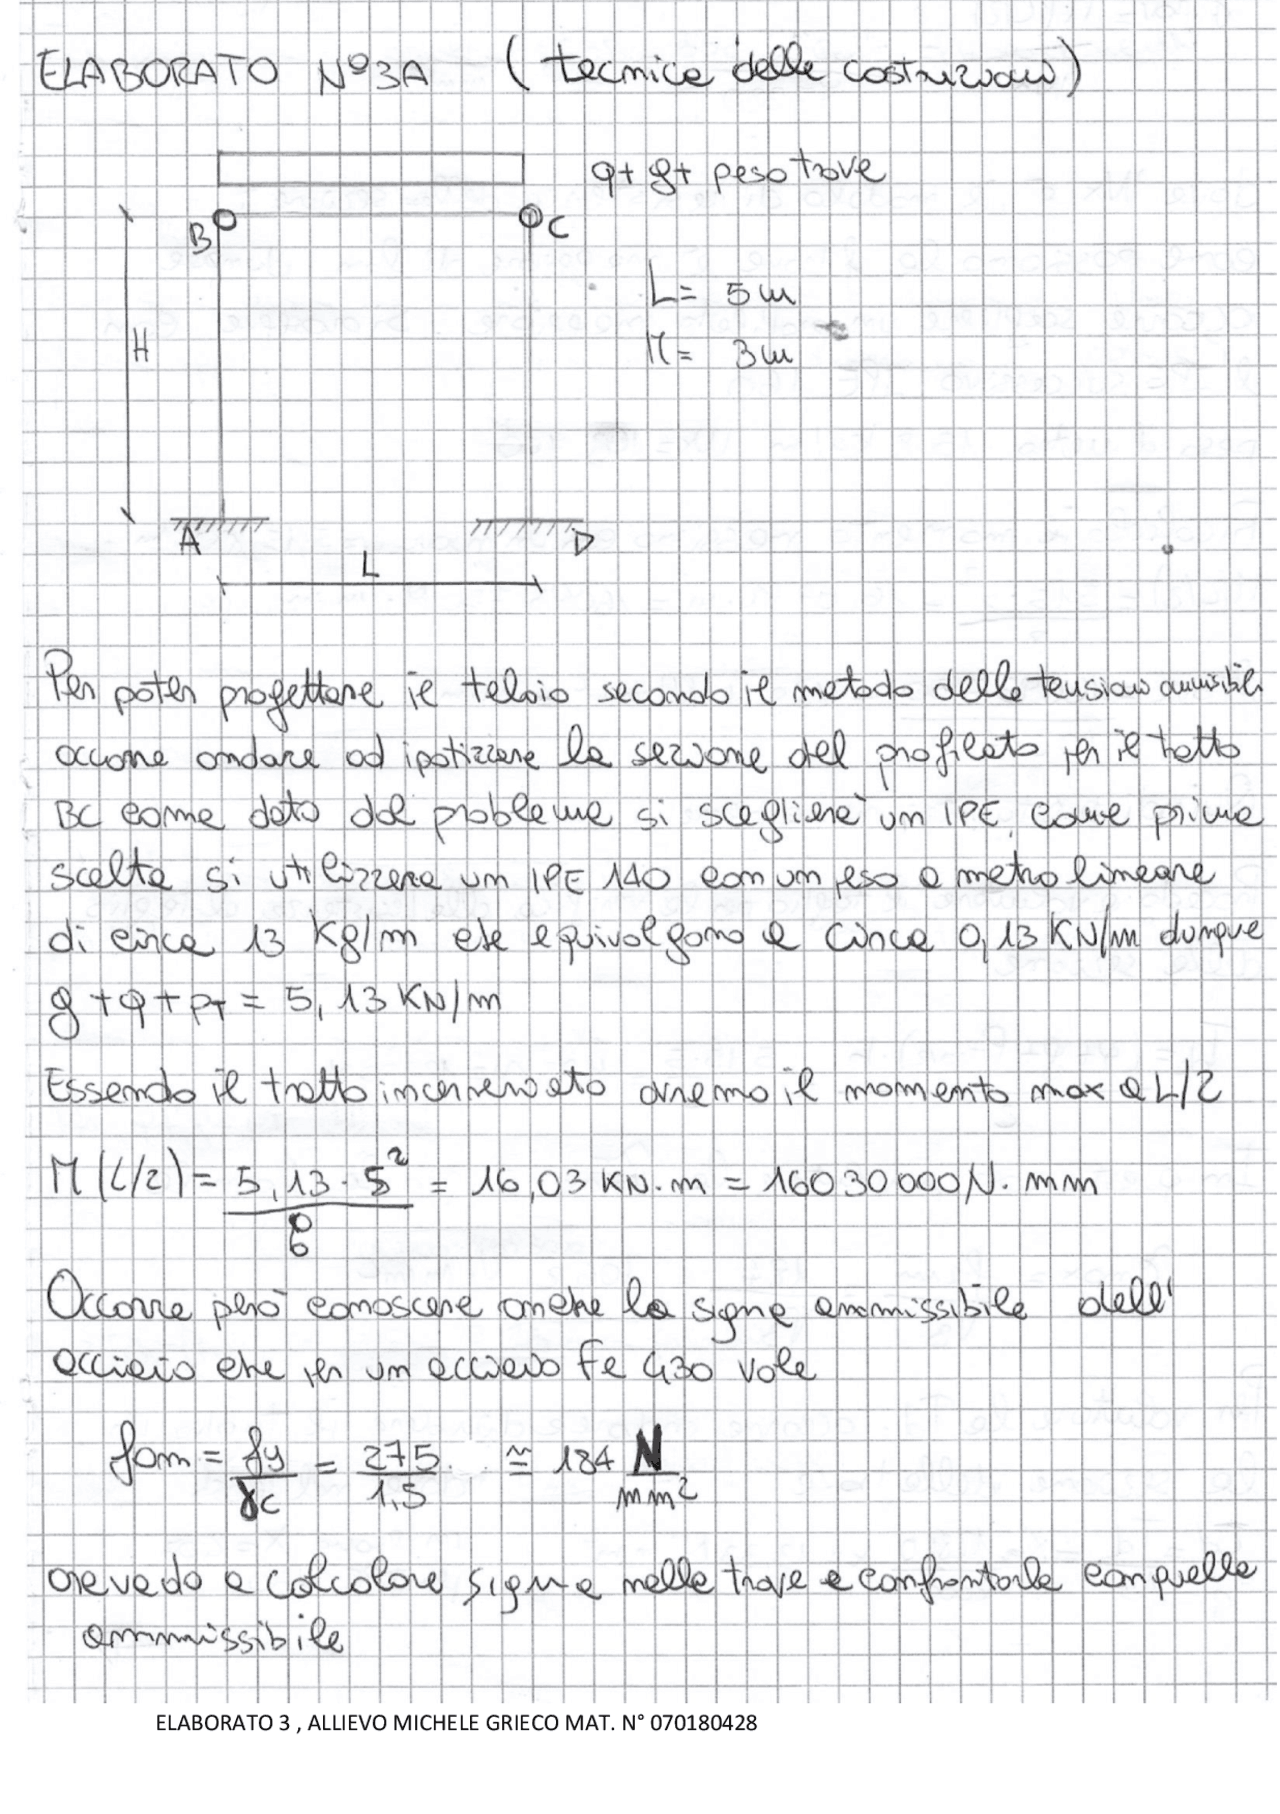 ELABORATO Nº3A (tecnica delle costruzioni)
q+ g+ peso trave
B
C
L= 5m
H
H= 3m
A
D
L
Per poter progettare il telaio secondo il metodo delle tensioni ammissibili
occorre andare ad ipotizzare la sezione del profilato per il tratto
BC come dato dal problema si sceglierà un IPE, come prima
scelta si utilizzera un IPE 140 con un peso a metro lineare
di circa 13 Kg/m che equivalgono a circa 0,13 KN/m dunque
g+q+pT = 5,13 KN/m
Essendo il tratto incernierato avremo il momento max a L/2
M(L/2) = 5,13 · 5² / 8 = 16,03 KN·m = 16030000 N·mm
Occorre però conoscere anche la sigma ammissibile dell'
acciaio che per un acciaio Fe 430 vale
fam = fy / γc = 275 / 1,5 ≅ 184 N / mm²
andando a calcolare sigma nella trave e confrontarla con quella
ammissibile
ELABORATO 3 , ALLIEVO MICHELE GRIECO MAT. N° 070180428